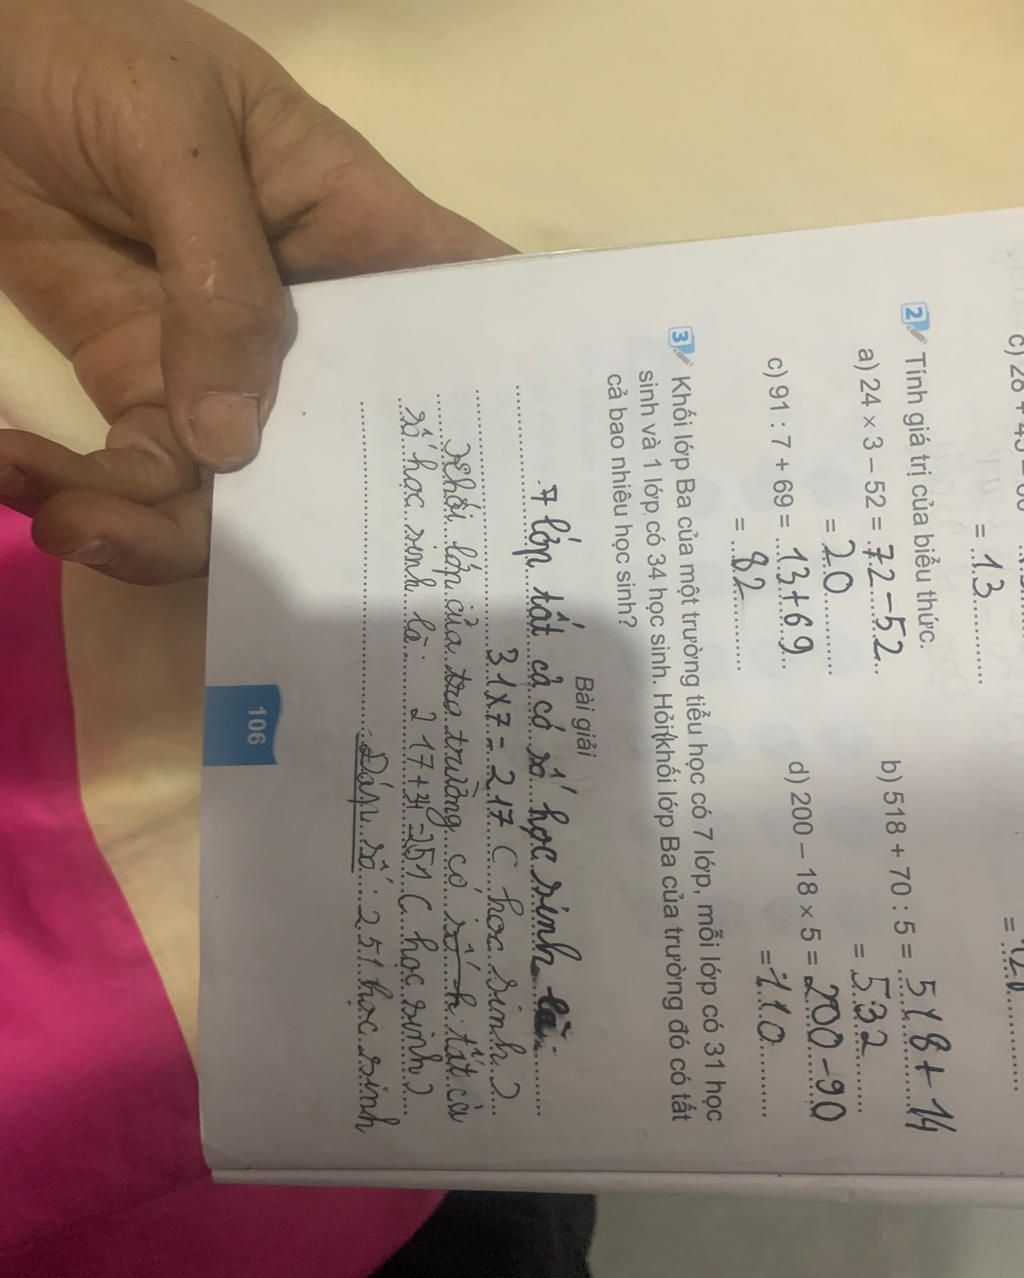 c) 28 + 45
= 13
=
2 Tính giá trị của biểu thức.
a) 24 × 3 – 52 = 72 – 52
= 20
b) 518 + 70 : 5 = 518 + 14
= 532
c) 91 : 7 + 69 = 13 + 69
= 82
d) 200 – 18 × 5 = 200 – 90
= 110
3 Khối lớp Ba của một trường tiểu học có 7 lớp, mỗi lớp có 31 học
sinh và 1 lớp có 34 học sinh. Hỏi khối lớp Ba của trường đó có tất
cả bao nhiêu học sinh?
Bài giải
7 lớp tất cả có số học sinh là:
31 x 7 = 217 ( học sinh )
Khối lớp của trường có tất cả
số học sinh là: 217 + 34 = 251 ( học sinh )
Đáp số: 251 học sinh
106